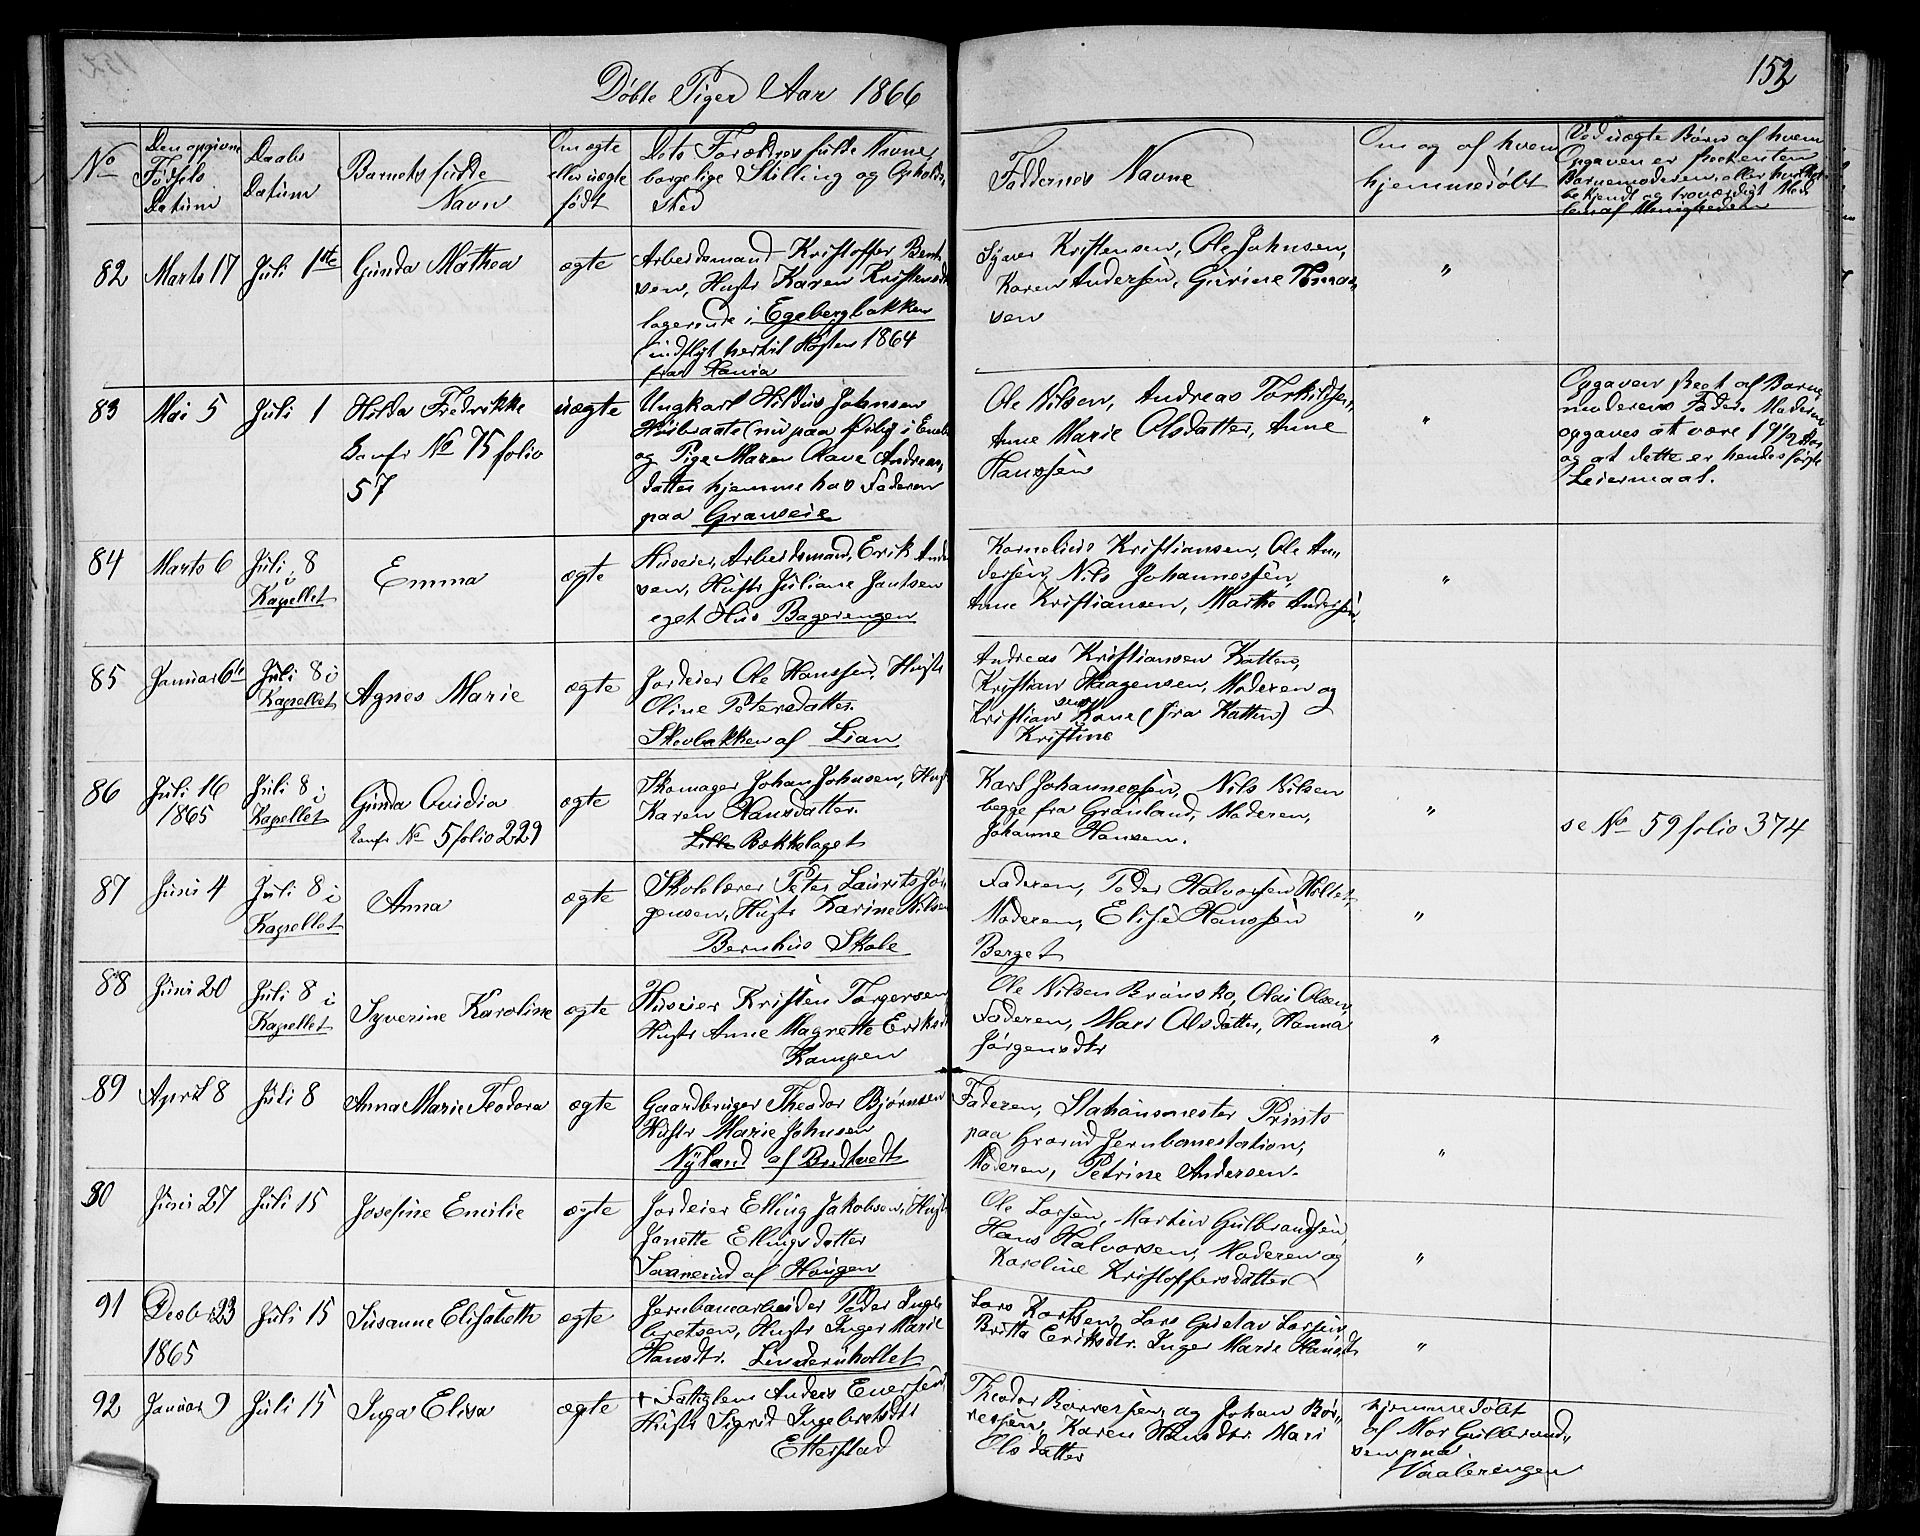 152
Døbte Piger Aar 1866
No
Den opgivne
Fødsels
Datum
Daabs
Datum
Barnets fulde
Navn
Om ægte
eller uægte
født
Dets Forældres fulde Navne,
borgelige Stilling og Opholds
Sted
Faddernes Navne
Om og af hvem
hjemmedøbt
Ved uægte Børn af hvem
Opgaven er
Barnemoderen, eller
bekjendt og troværdigt Med
lem af Menigheden
82
Marts 17
Juli 1ste
Gunda Mathea
ægte
Arbeidsmand Kristoffer Bent
sen, Hustr Karen Kristensdtr
logerende i Egebergbakken
indflyt hertil Høsten 1864
fra
Syver Kristensen, Ole Johnsen,
Karen Andersen, Gurine Tomas-
sen
"
83
Mai 5
Juli 1
Hilda Fredrikke
Confr No 75 folio
57
uægte
Ungkarl Hildus Johnsen
(nu paa i
og Pige Maren Olave Andreas
datter hjemme hos Faderen
paa Granseie
Ole Nilsen, Andreas Torkildsen,
Anne Marie Olsdatter, Anne
Hanssen
"
Opgaven skeet af Barne
moderens Fader. Moderen
opgaves at være 19 1/2 Aar
og at dette er hendes første
Leiermaal.
84
Marts 6
Juli 8
i
Kapellet
Emma
ægte
Huseier, Arbeidsmand, Erik Ander
sen, Hustr Juliane Jantsen
eget Hus Bagerengen
Kornelius Kristiansen, Ole An-
dersen, Nils Johannessen,
Anne Kristiansen, Marthe Andersen.
"
85
Januar 6te
Juli 8 i
Kapellet
Agnes Marie
ægte
Jordeier Ole Hanssen, Hustr
Oline Petersdatter.
Skovbakken af Lian
Andreas Kristiansen Katten,
Kristian Haagensen, Moderen og
Kristian sens Kone (fra Katten)
Kristine
86
Juli 16
1865
Juli 8 i
Kapellet
Gunda Ovidia
Confr No 5 folio 229
ægte
Skomager Johan Johnsen, Hustr
Karen Hansdatter.
Lille Bækkelaget
Karl Johannessen, Nils Nilsen
begge fra Grønland, Moderen,
Johanne Hansen.
"
se No 59 folio 374
87
Juni 4
Juli 8 i
Kapellet
Anna
ægte
Skolelærer Peter Laurits Jør-
gensen, Hustr Karine Nilsen
Bernhus Skole
Faderen, Peder Halvorsen Holtet,
Moderen, Elise Hanssen
Berget
"
88
Juni 20
Juli 8 i
Kapellet
Syverine Karoline
ægte
Huseier Kristen Torgersen,
Hustr Anne Magrette Eriksdtr
Kampen
Ole Nilsen Brænsko, Olai Olsen,
Faderen, Mari Olsdatter, Hanna
Jørgensdtr
"
89
April 8
Juli 8
Anna Marie Teodora
ægte
Gaardbruger Theodor Bjørnsen
Hustr Marie Johnsen
Nyland af Bredtvedt
Faderen, Stationsmester Prints
paa Grorud Jernbanestation,
Moderen, Petrine Andersen.
"
90
Juni 27
Juli 15
Josefine Emilie
ægte
Jordeier Elling Jakobsen, Hustr
Janette Ellingsdatter
Svanerud af Haugen
Ole Larsen, Martin Gulbrandsen,
Hans Halvorsen, Moderen og
Karoline Kristoffersdatter
"
91
Desber 23
1865
Juli 15
Susanne Elisabeth
ægte
Jernbanearbeider Peder Inge
bretsen, Hustr Inger Marie
Hansdtr. Linderudkollet
Lars Karlsen, Lars Gustav Larsen,
Britta Eriksdtr. Inger Marie Hansdtr
"
92
Januar 9
Juli 15
Inga Elisa
ægte
+ Fattiglem Anders Enersen
Hustr Sigrid Ingebretsdtr
Etterstad
Theodor Børresen, og Johan Bør-
resen, Karen Hansdtr. Mari
Olsdatter
hjemmedøbt
af Mor Gulbrand-
sen paa
Vaalerengen